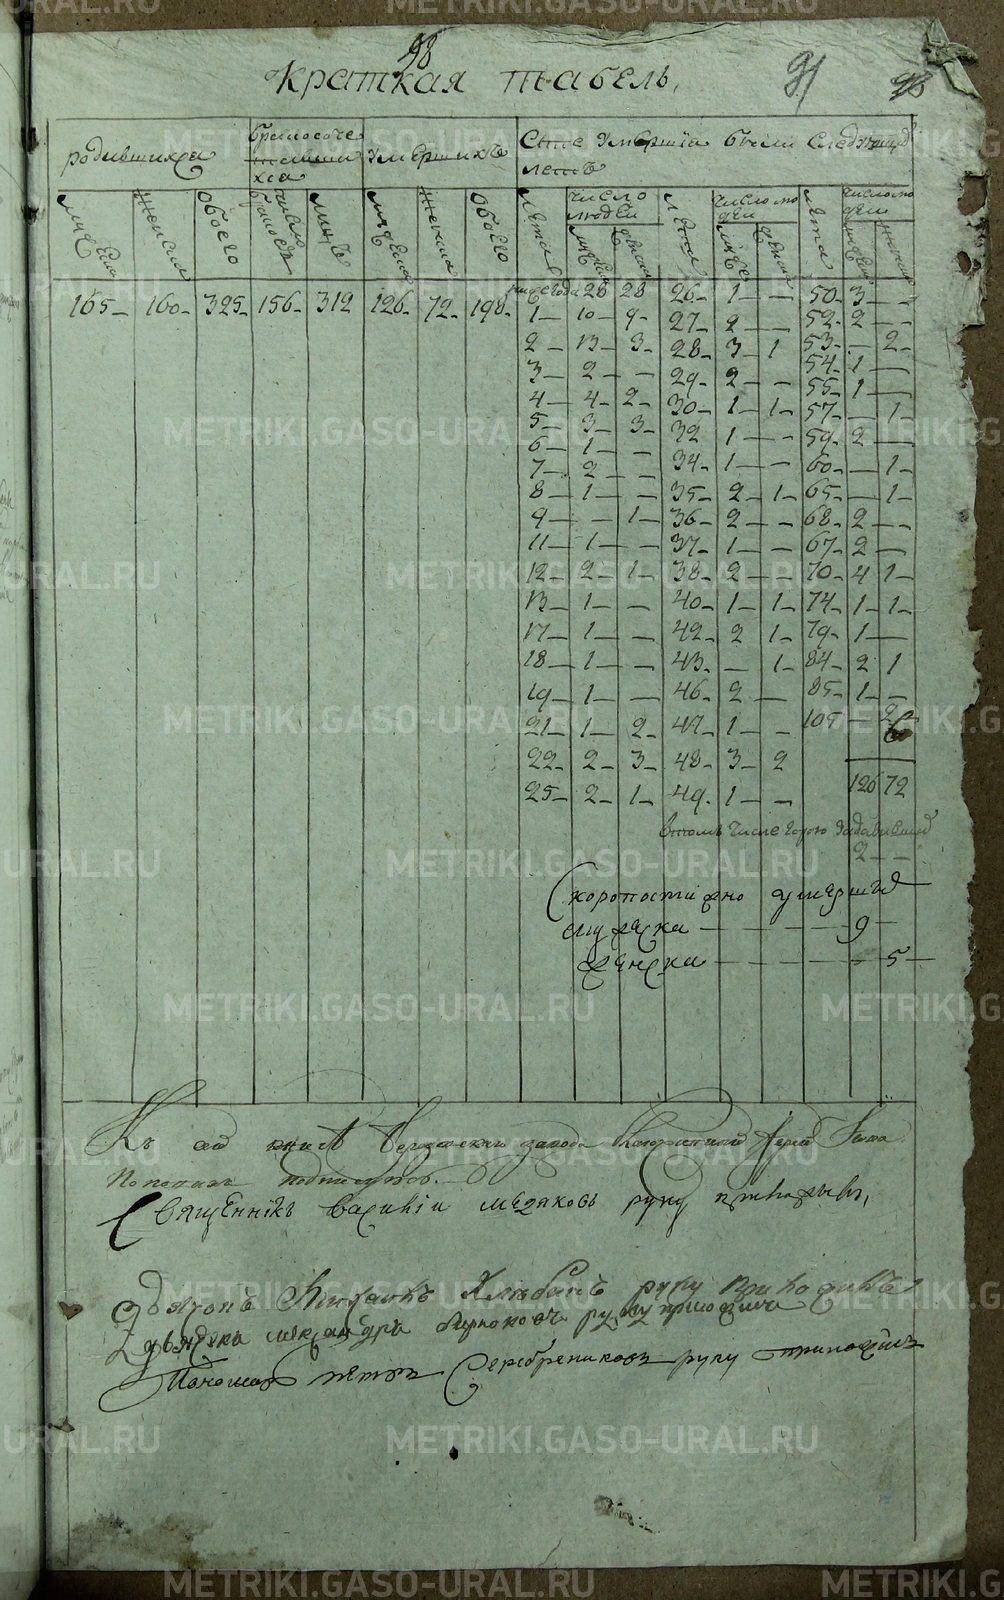 98
Краткая табель,
91
98
родившихся
бракосоче
хся
умершихъ
Сіи умершіе были следующихъ
летъ
мужеска
женска
обоего
число браковъ
лицъ
мужеска
женска
обоего
лета
число людей
лета
число людей
лета
число людей
165 160 325 156 312 126 72 198
ниже года 28 28 26 1 — 50 3 —
1 10 9 27 2 — 52 2 —
2 13 3 28 3 1 53 — 2
3 2 — 29 2 — 54 1 —
4 4 2 30 1 1 55 1 —
5 3 3 32 1 — 57 — 1
6 1 — 34 1 — 59 2 —
7 2 — 35 2 1 60 — 1
8 1 — 36 2 — 65 — 1
9 — 1 37 1 — 68 2 —
11 1 — 38 2 — 67 2 —
12 2 1 40 1 1 70 4 1
13 1 — 42 2 1 74 1 1
17 1 — 43 — 1 79 1 —
18 1 — 46 2 — 84 2 1
19 1 — 47 1 — 85 1 —
21 1 2 48 3 2 105 — 2
22 2 3 49 1 —
25 2 1
126 72
втомъ числе горою задавившихъ
2 —
Скоропостижно умерших
мужеска — 9 —
женска — 5 —
Къ сей книге завода
Попопичъ подписуюсь.
Священникъ Василий Медяковъ руку приложилъ,
Дьяконъ Михаилъ Хлебинъ руку приложилъ
Дьячекъ александръ руку приложилъ
Пономарь петръ Серебрениковъ руку приложилъ
METRIKI.GASO-URAL.RU